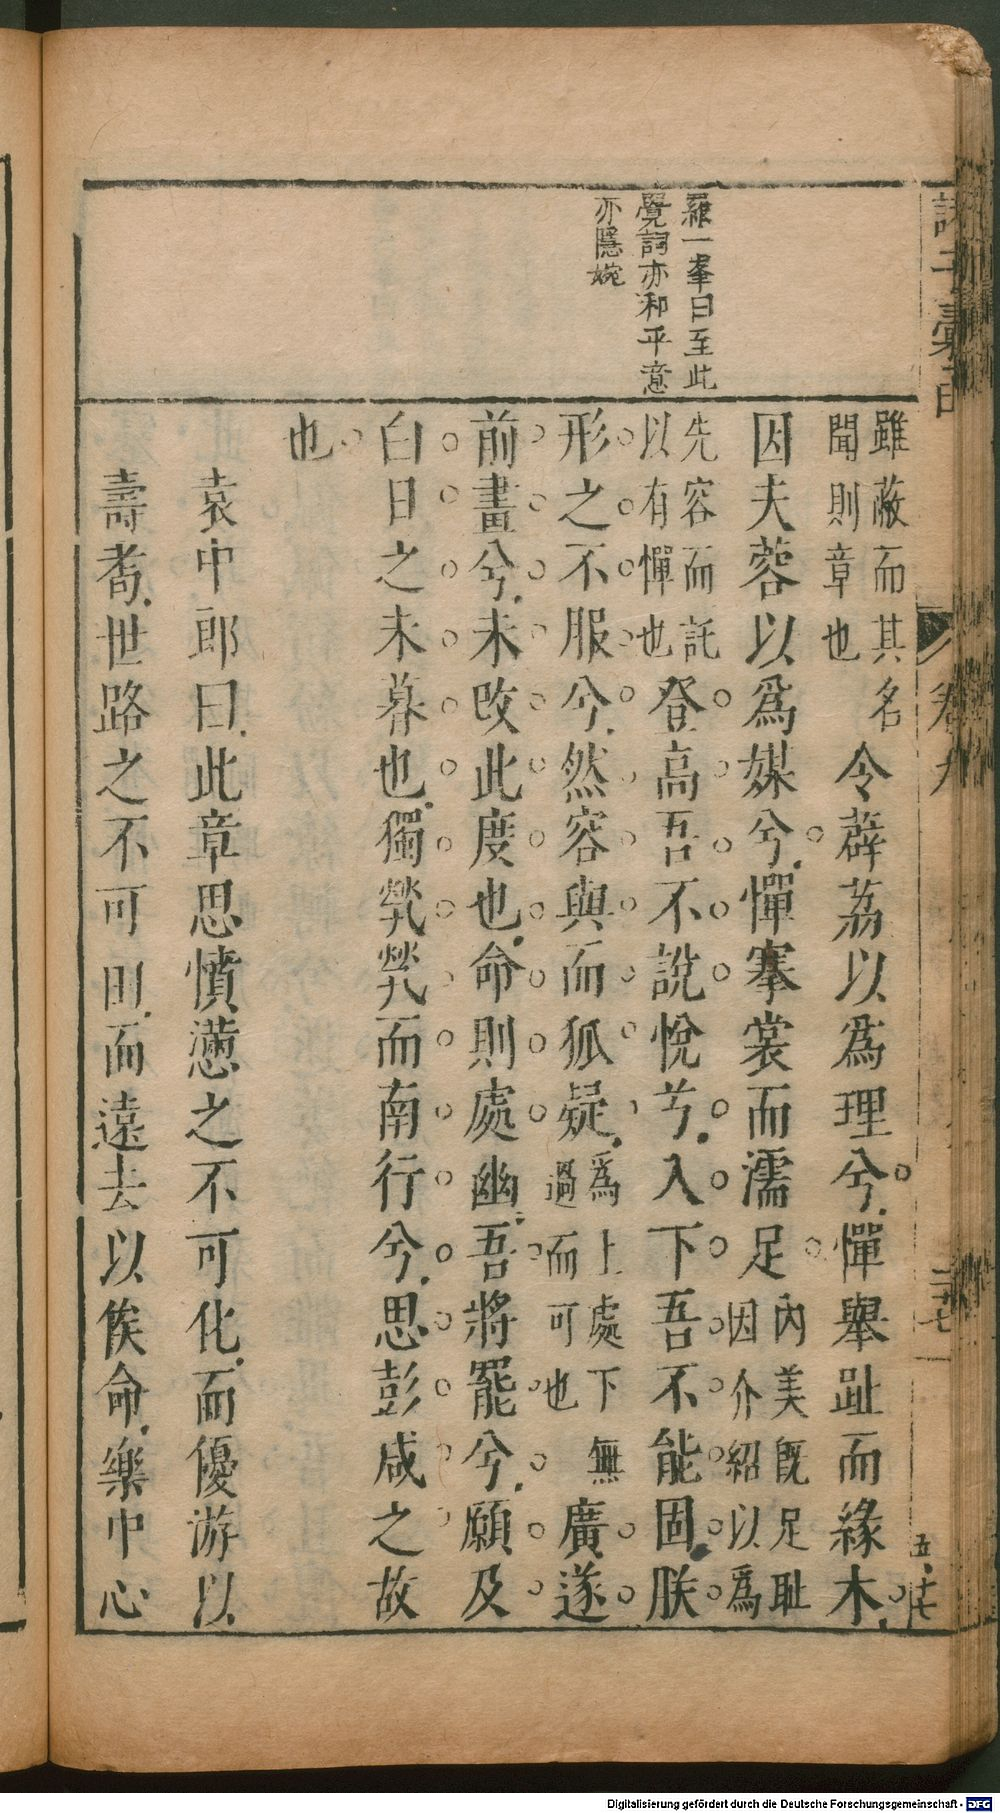 諸子彙函
卷九
羅一峯曰至此
覺詞亦和平意
亦隱婉
雖蔽而其名
聞則章也
令薜荔以爲理兮憚舉趾而緣木
因夫蓉以爲媒兮憚搴裳而濡足
內美既足耻
因介紹以爲
先容而託
以有憚也
登高吾不說悅兮入下吾不能固朕
形之不服兮然容與而狐疑
爲上處下無
過而可也
廣遂
前畫兮未改此度也命則處幽吾將罷兮願及
白日之未暮也獨煢煢而南行兮思彭咸之故
也
袁中郎曰此章思憤懣之不可化而優游以
壽耉世路之不可由而遠去以俟命樂中心
Digitalisierung gefördert durch die Deutsche Forschungsgemeinschaft - DFG